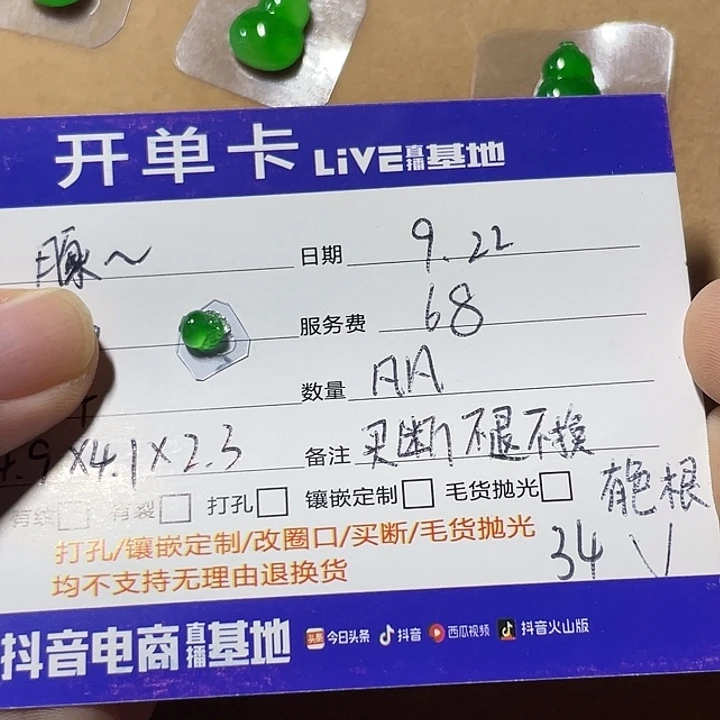 开单卡 LiVE直播基地
日期 9.22
服务费 68
数量 AA
4.9×4.1×2.3 备注 买断不退不换
有纹 有裂 打孔 镶嵌定制 毛货抛光 有色根
打孔/镶嵌定制/改圈口/买断/毛货抛光 34 V
均不支持无理由退换货
抖音电商直播基地 头条 今日头条 抖音 西瓜视频 抖音火山版